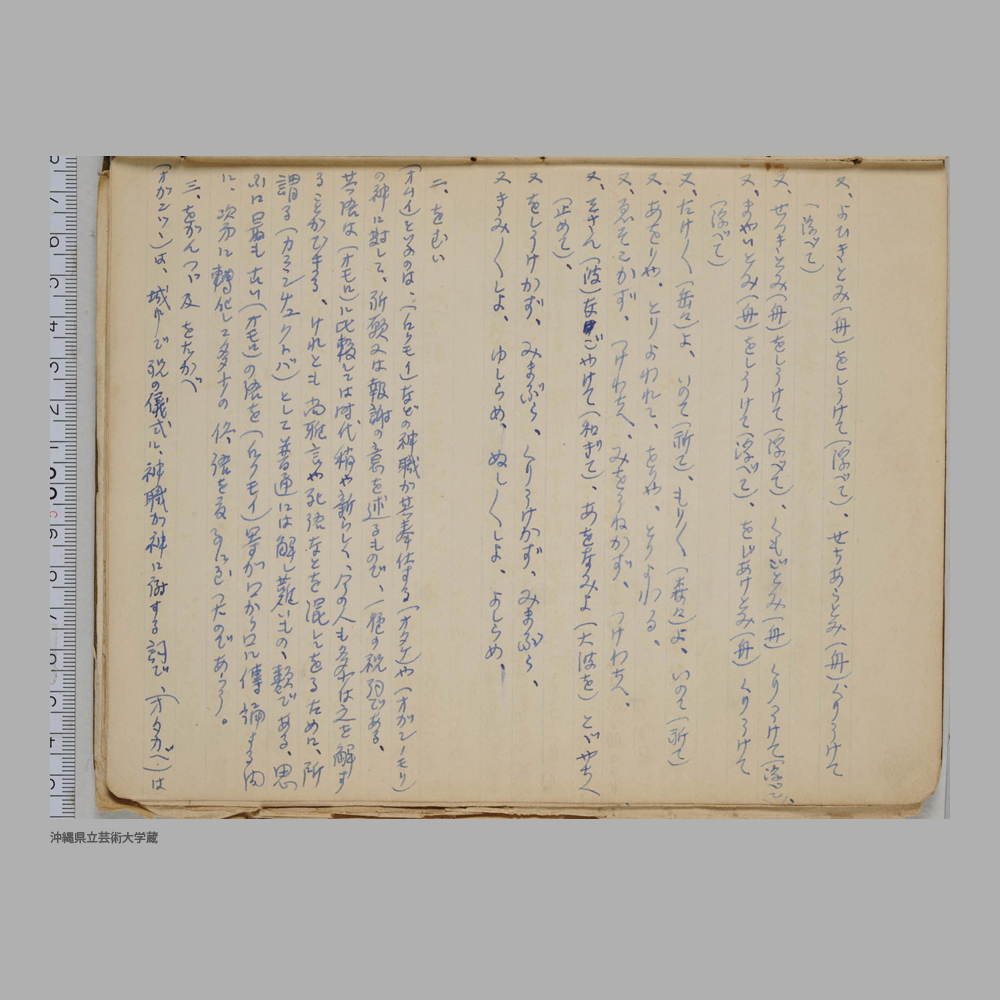 又、よひきとみ(舟)をしうけて(浮べて)、せちあらとみ(舟)くりうけて
(浮べて)
又、せつきとみ(舟)をしうけて(浮べて)、くもことみ(舟)くりうけて(浮べて)、
又、まやいとみ(舟)をしうけて(浮べて)、をしあけとみ(舟)くりうけて
(浮べて)
又、たけ〱(岳々)よ、いのて(祈て)、もり〱(森々)よ、いのて(祈て)
又、あをりや、とりよわれて、をりや、とりよわる、
又、ゑそこかず、つけわちへ、みをうねかず、つけわちへ、
又、きさん(波)をごやけて(和ぎて)、あをなみよ(大波を)とゞやちへ
(止めて)、
又をしうけかず、みまぶら、くりうけかず、みまぶら、
又きみ〱しよ、ゆしらめ、ぬし〱しよ、よしらめ、
二、をむい
(オムイ)といふのは、(ノロクモイ)などの神職が其奉仕する(オタケ)や(オガンーモリ)
の神に対して、祈願又は報謝の意を述るもので、一種の祝詞である、
其語は(オモロ)に比較しては時代稍や新らしく、今の人も多分は之を解す
ることができる、けれとも尚雅言や死語なとを混しをるために、所
謂る(カミンチュクトバ)として普通には解し難いもの、類である、思
ふに最も古い(オモロ)の語を(ノロクモイ)等が口から口に傳誦する内
に、次第に轉化して多少の俗語を交るに至つたのであらう。
三、をがんつゞ及をたかべ
(オガンツゞ)は、城内で祝の儀式に、神職が神に謝する詞で、(オタカベ)は
沖縄県立芸術大学蔵